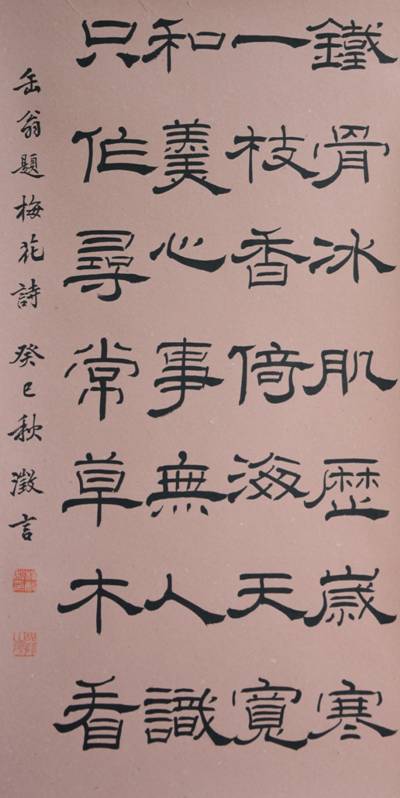 鐵骨冰肌歷歲寒
一枝香倚海天寬
和羹心事無人識
只作尋常草木看
缶翁題梅花詩 癸巳秋 澂言